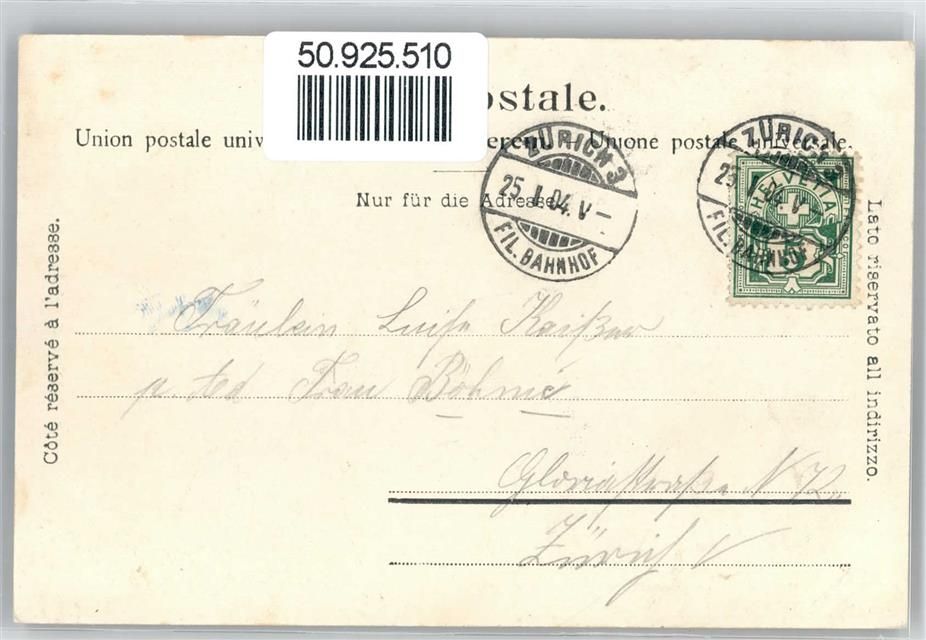 50.925.510
ostale.
Union postale unive erein. Unione postale universale.
Nur für die Adresse.
ZÜRICH 3
25. I. 04. V –
FIL. BAHNHOF
ZÜRICH 3
25. I. 04. V –
FIL. BAHNHOF
HELVETIA
5
Côté réservé à l'adresse.
Lato riservato all indirizzo.
Fräulein Luise Kaißer
Frau Böhme
Gloriastraße N 72.
Zürich V